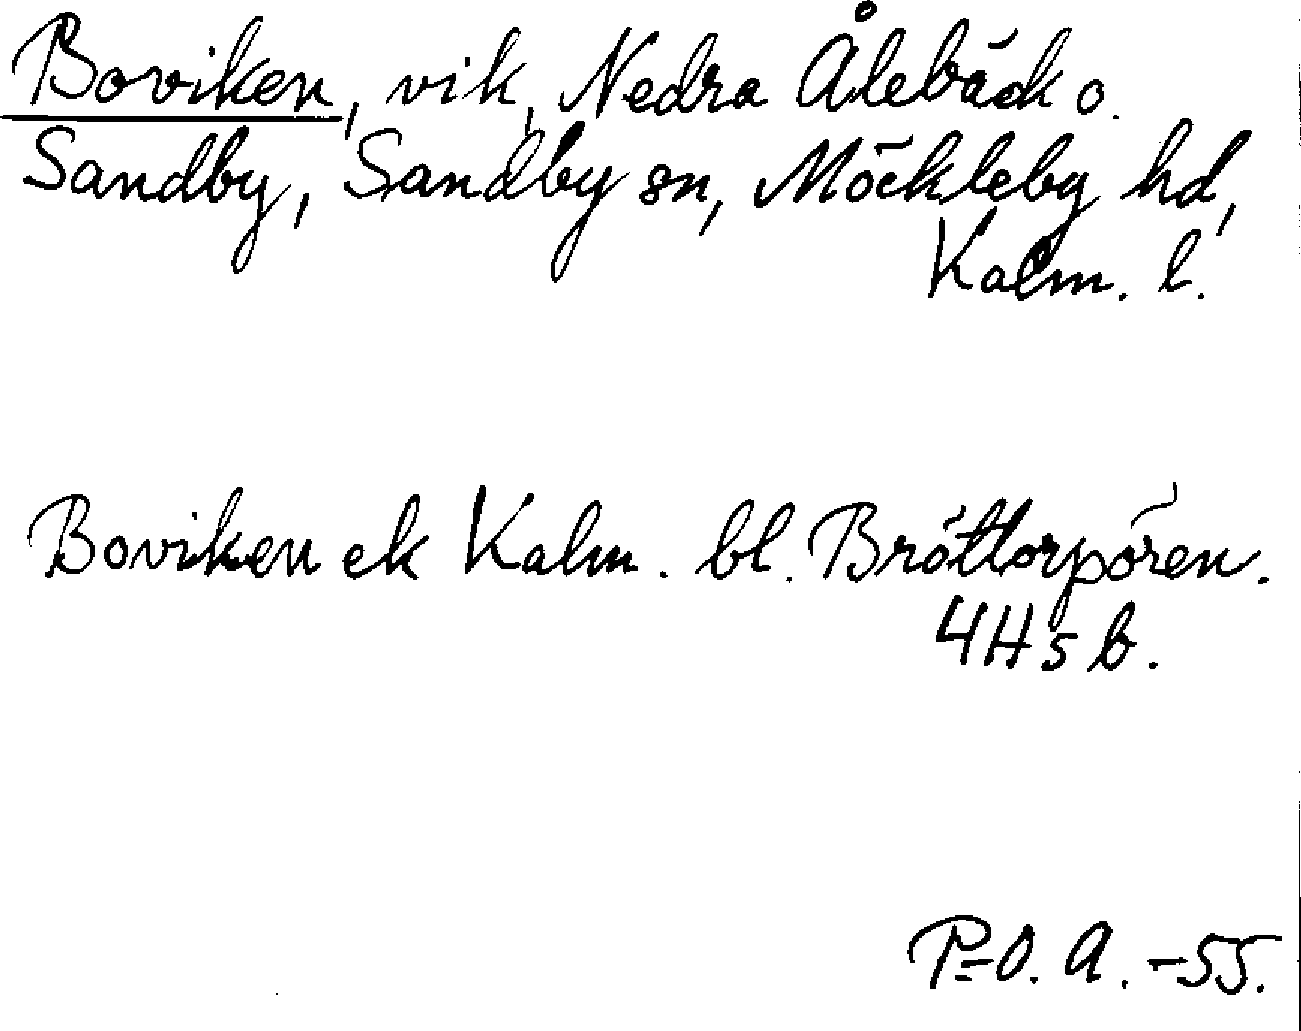 Boviken, vik, Nedra Ålebäck o.
Sandby, Sandby sn, Möckleby hd,
Kalm. l.
Boviken ek Kalm. bl. Bröttorpören.
4H5b.
P=O. A. -55.